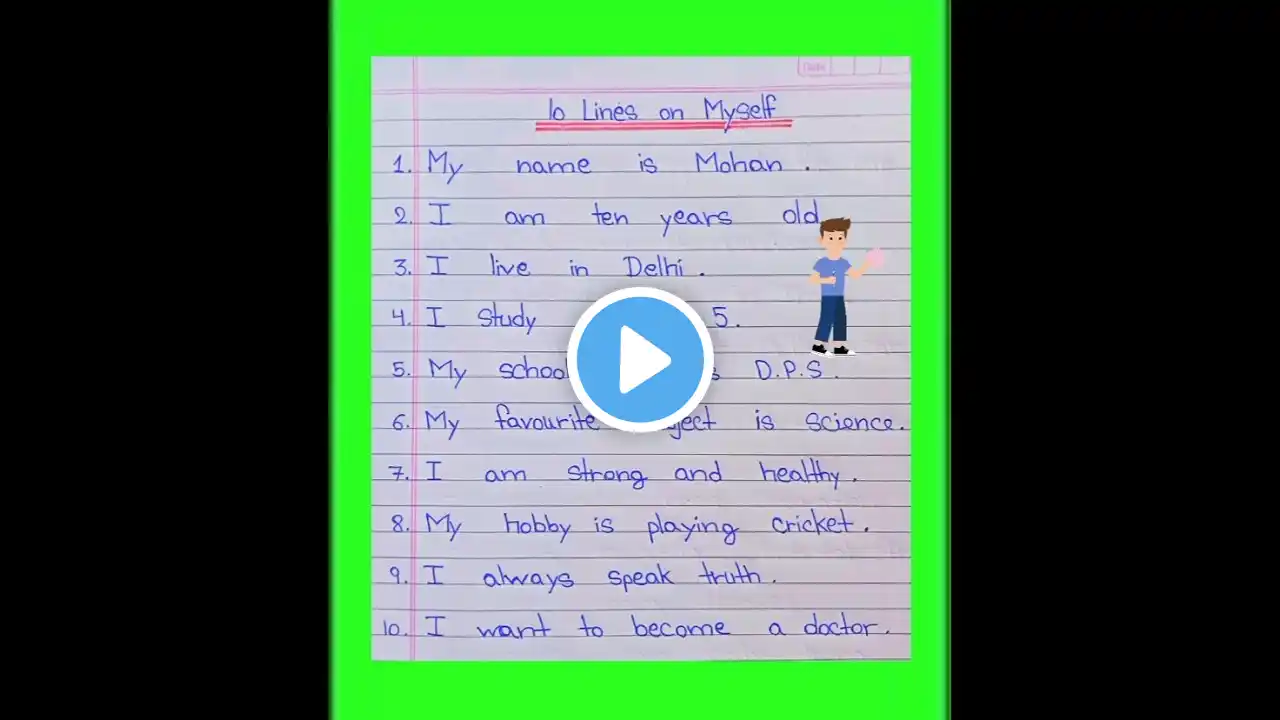 Date
10 Lines on Myself
1. My name is Mohan.
2. I am ten years old
3. I live in Delhi.
4. I study 5.
5. My school D.P.S.
6. My favourite is science.
7. I am strong and healthy.
8. My hobby is playing cricket.
9. I always speak truth.
10. I want to become a doctor.